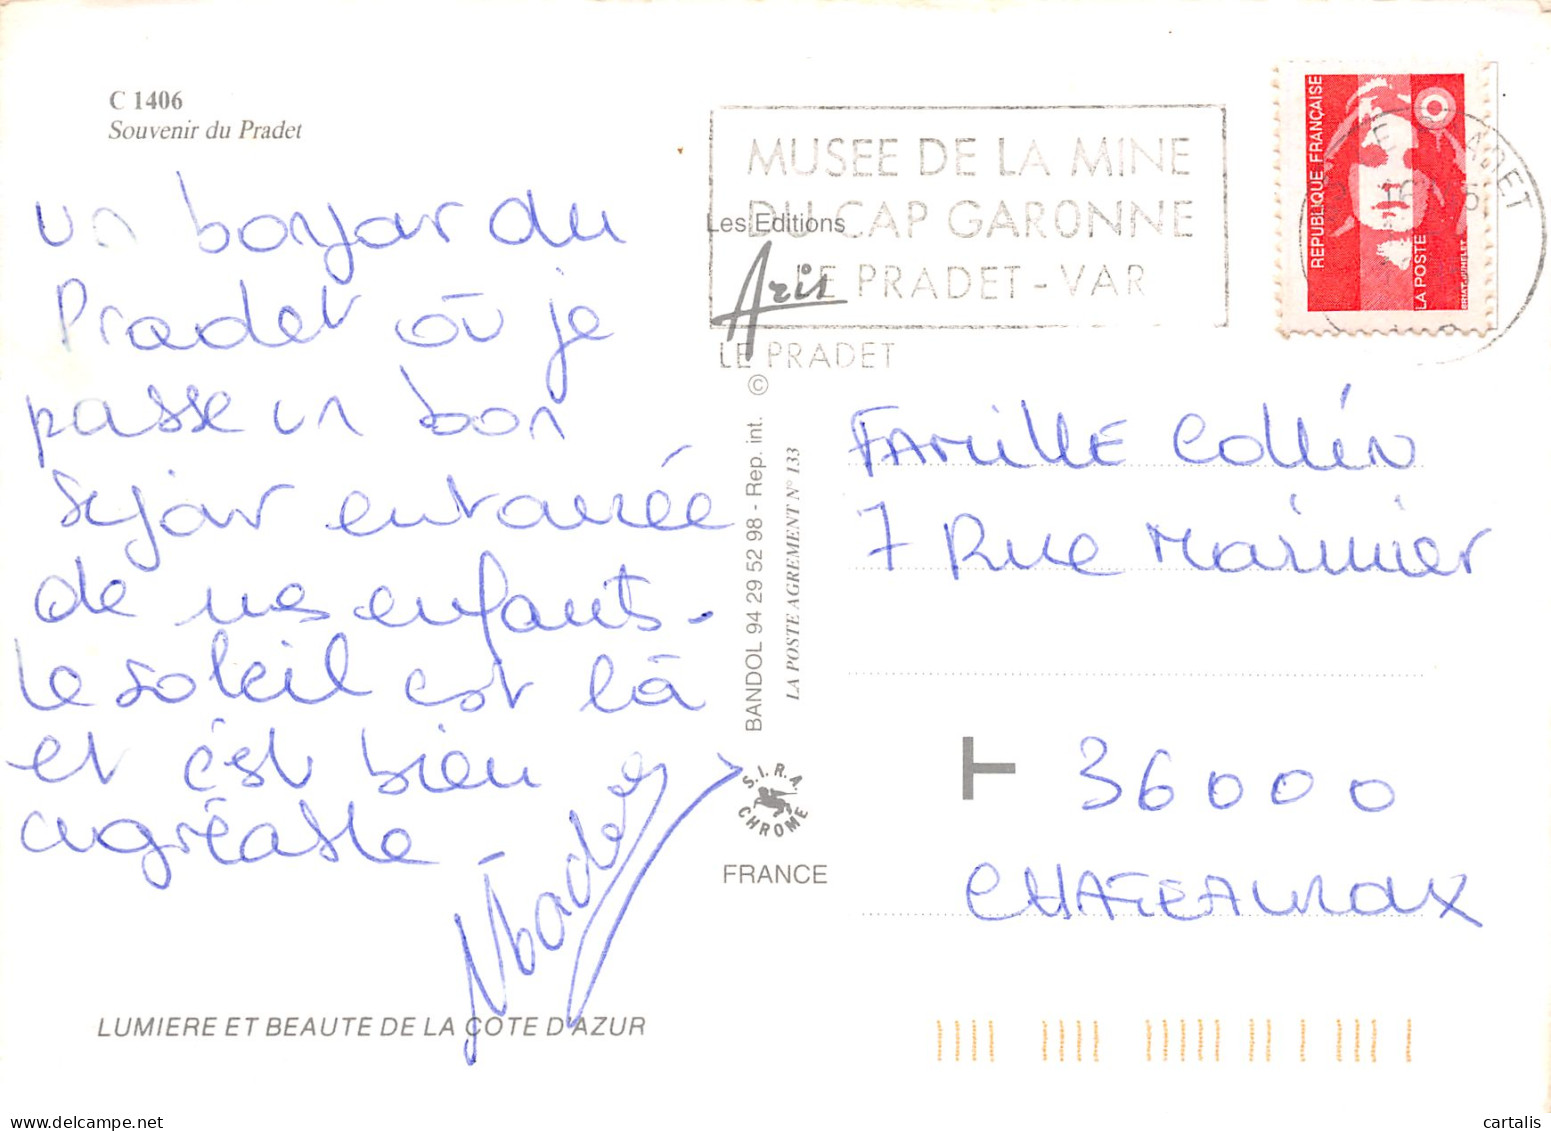 C 1406
Souvenir du Pradet
un bonjour du
Pradet où je
passe un bon
séjour entourée
de nos enfants.
Le soleil est là
et c'est bien
agréable
LUMIERE ET BEAUTE DE LA COTE D'AZUR
MUSEE DE LA MINE
DU CAP GARONNE
LE PRADET - VAR
LE PRADET
Les Editions
Aris
BANDOL 94 29 52 98 - Rep. int. ©
LA POSTE AGREMENT N° 133
S.I.R.A.
CHROME
FRANCE
REPUBLIQUE FRANÇAISE
LA POSTE
BRIAT-JUMELET
FAMILLE Collin
7 Rue Marinier
36000
CHATEAUROUX
www.cartalis
cartalis